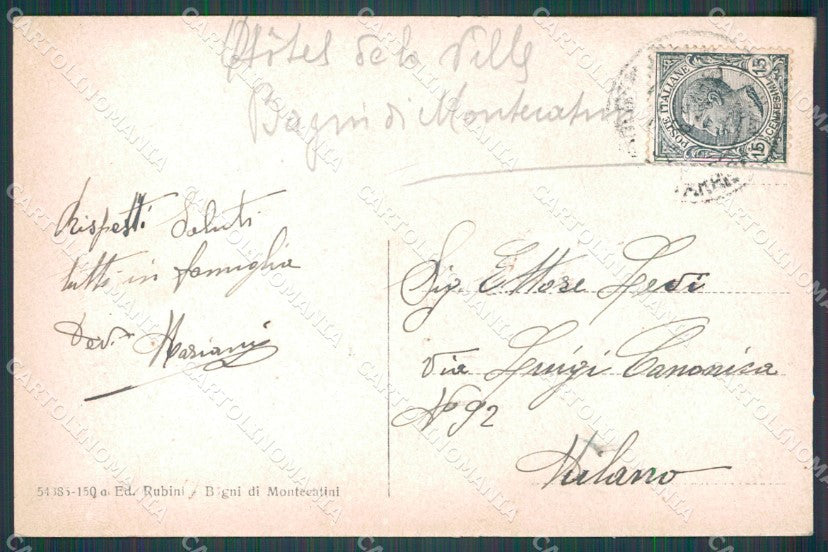 Hôtel de la Ville
Bagni di Montecatini
POSTE ITALIANE
15 CENTESIMI 15
Rispetti Saluti
tutti in famiglia
Dev. Mariani
Sig. Ettore Levi
Via Luigi Canonica
N° 92
Milano
54385-150 a Ed. Rubini - Bagni di Montecatini
CARTOLINOMANIA